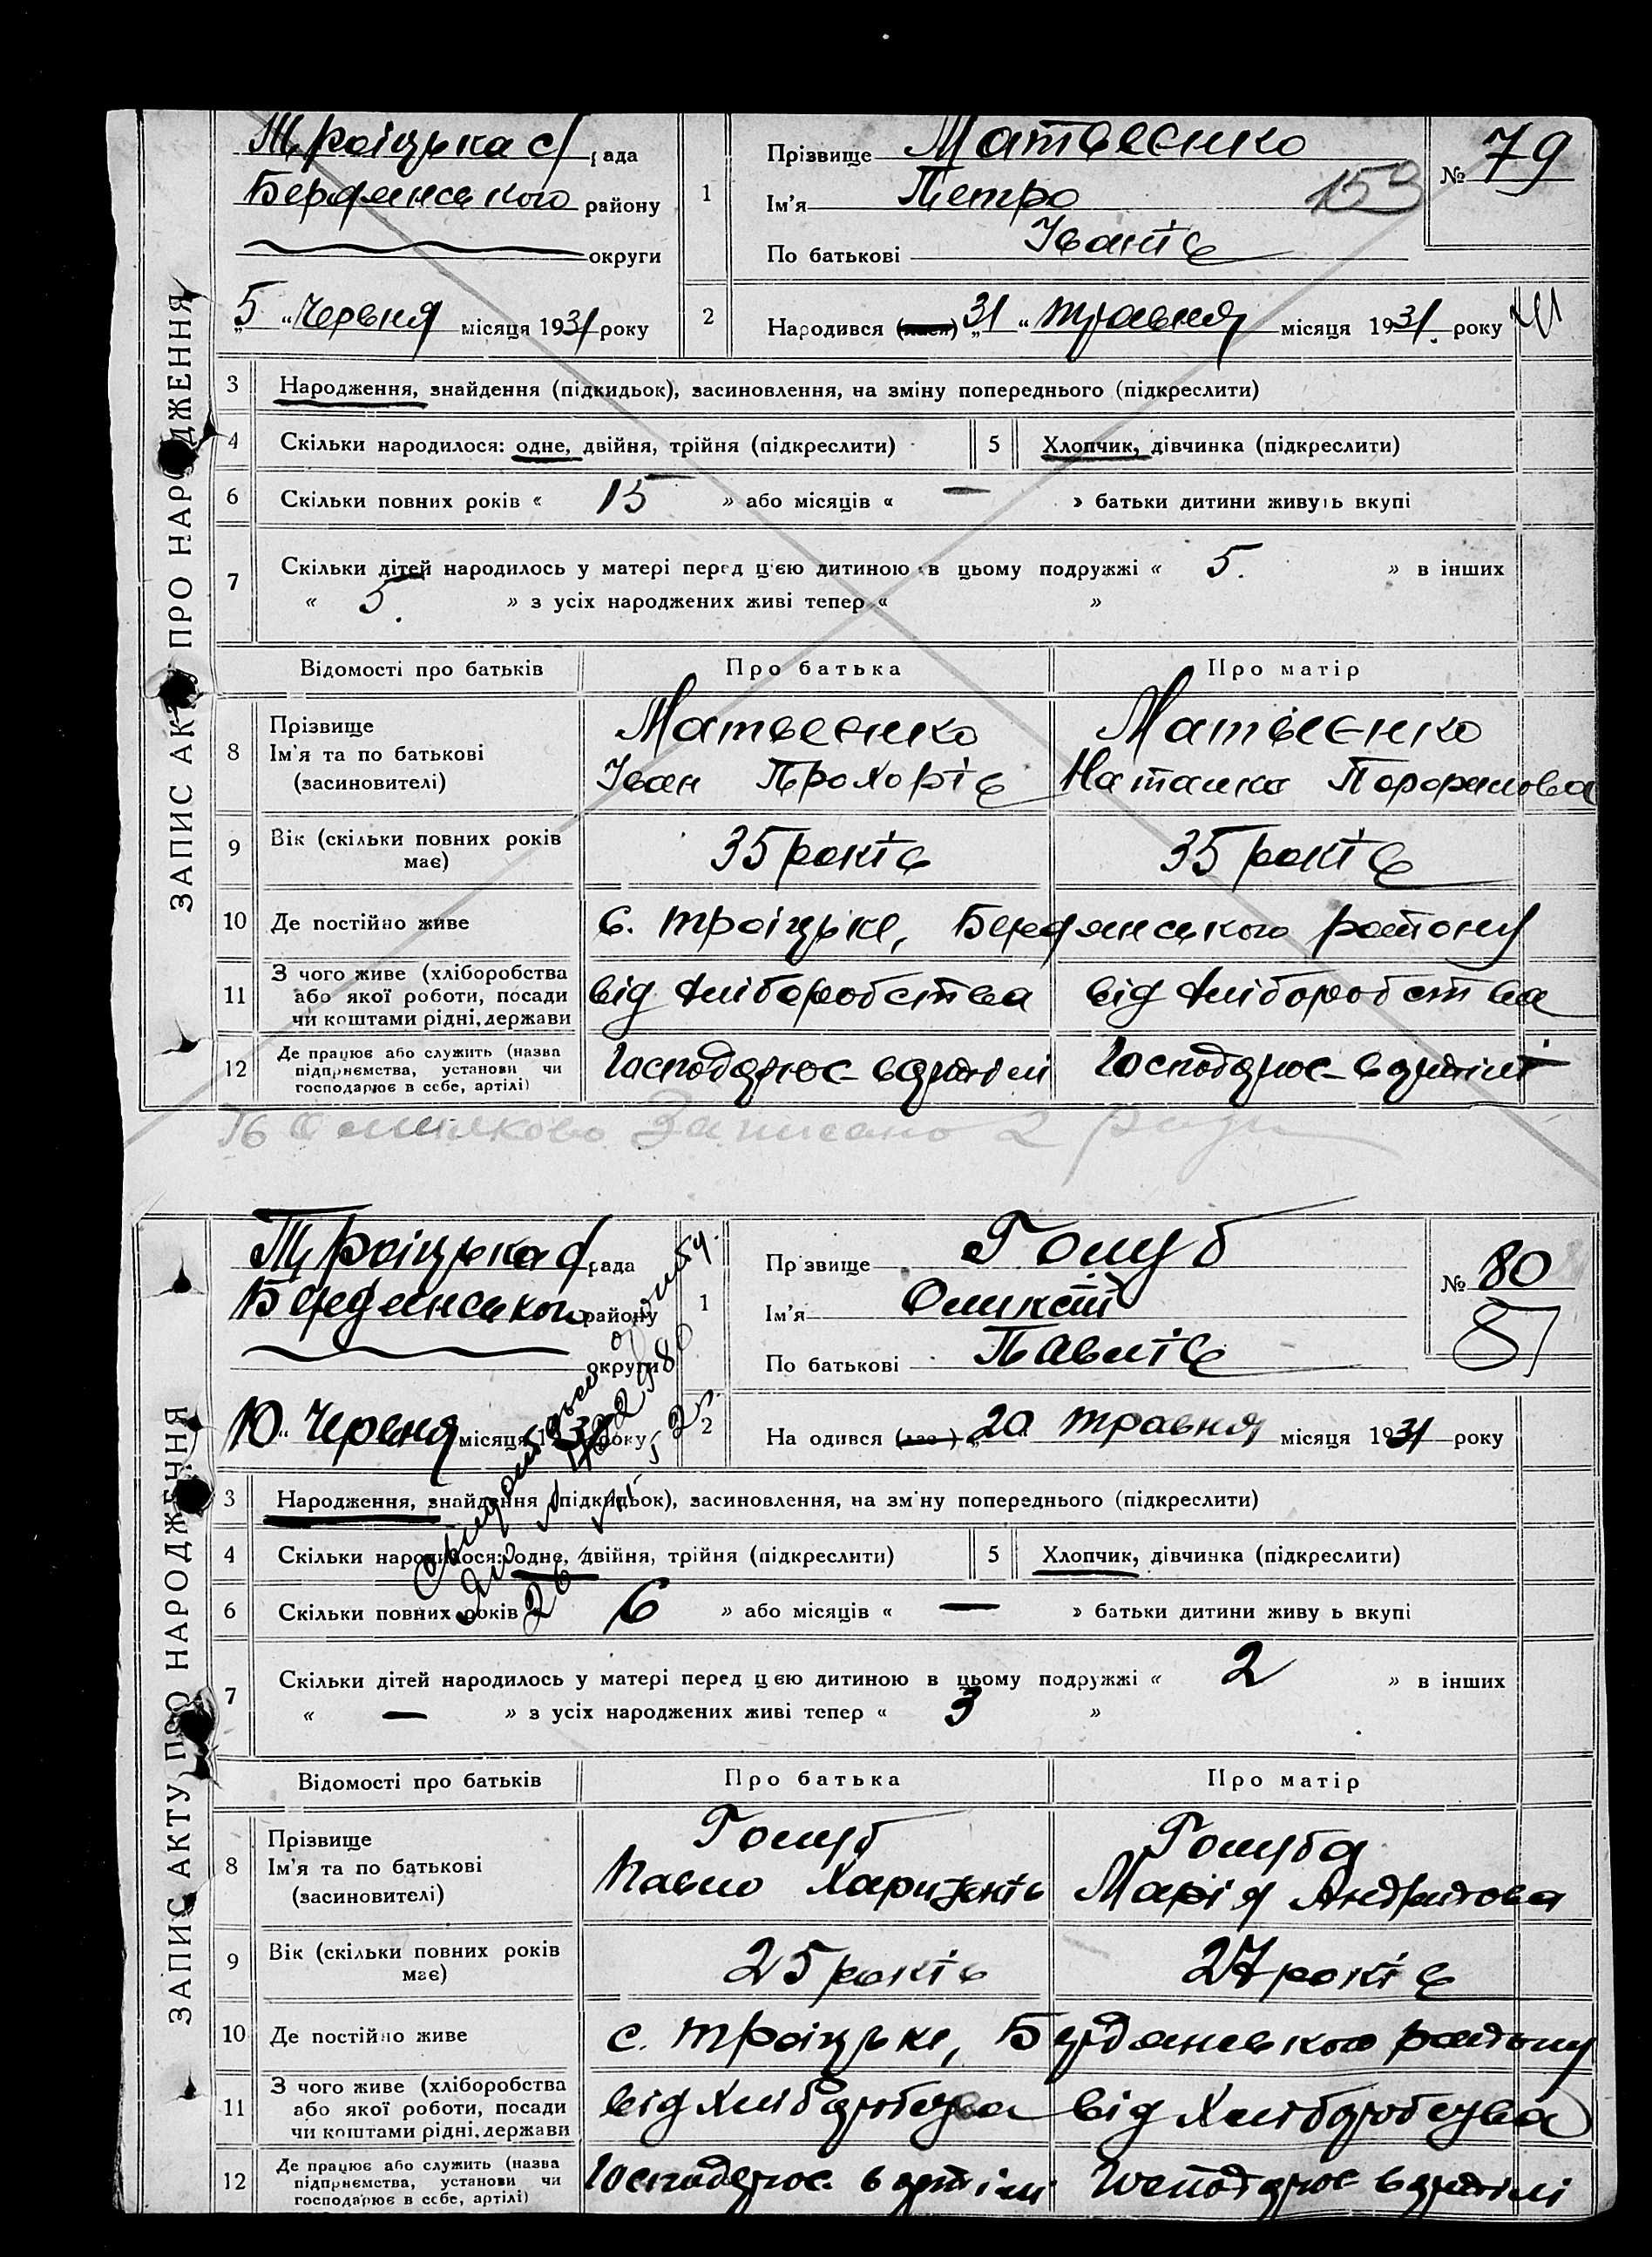 ЗАПИС АКТУ ПРО НАРОДЖЕННЯ
Троіцька с/рада
Бердянського району
округи
„5„ Червня місяця 1931 року
1 Прізвище Матвеєнко
Ім'я Петро 153
По батькові Іванів
№ 79
2 Народився „31„ травня місяця 1931. року
3 Народження, знайдення (підкидьок), засиновлення, на зміну попереднього (підкреслити)
4 Скільки народилося: одне, двійня, трійня (підкреслити) 5 Хлопчик, дівчинка (підкреслити)
6 Скільки повних років « 15 » або місяців « — » батьки дитини живуь вкупі
7 Скільки дітей народилось у матері перед цєю дитиною в цьому подружжі « 5. » в інших
« 5. » з усіх народжених живі тепер « »
Відомості про батьків Про батька Про матір
8 Прізвище Матвеєнко Матвієєнко
Ім'я та по батькові Іван Прохорів Наталка
(засиновителі)
9 Вік (скільки повних років має) 35 років 35 років
10 Де постійно живе с. Троіцьке, Бердянського району
11 З чого живе (хліборобства або якої роботи, посади чи коштами рідні, держави від хліборобства від хліборобства
12 Де працює або служить (назва підприємства, установи чи господарює в себе, артілі) Господарює в артілі Господарює в артілі
Помилково Записано 2 рази
ЗАПИС АКТУ ПРО НАРОДЖЕННЯ
Троіцька с/рада
Бердянського району
округи
10„ Червня місяця 1931 року
1 Прзвище Голуб
Ім'я Олексій
По батькові Павлів
№ 80
87
2 На одився „20 травня місяця 1931 року
3 Народження, знайдення (підкидьок), засиновлення, на зміну попереднього (підкреслити)
4 Скільки народилося: одне, двійня, трійня (підкреслити) 5 Хлопчик, дівчинка (підкреслити)
6 Скільки повних років 6 » або місяців « — » батьки дитини живу ь вкупі
7 Скільки дітей народилось у матері перед цєю дитиною в цьому подружжі « 2 » в інших
« — » з усіх народжених живі тепер « 3 »
Відомості про батьків Про батька Про матір
8 Прізвище Голуб Голуба
Ім'я та по батькові Павло Харитонів Марія Андріїова
(засиновителі)
9 Вік (скільки повних років має) 25 років 27 років
10 Де постійно живе с. Троіцьке, Бердянського району
11 З чого живе (хліборобства або якої роботи, посади чи коштами рідні, держави від від
12 Де працює або служить (назва підприємства, установи чи господарює в себе, артілі) Господарює в артілі Господарює в артілі